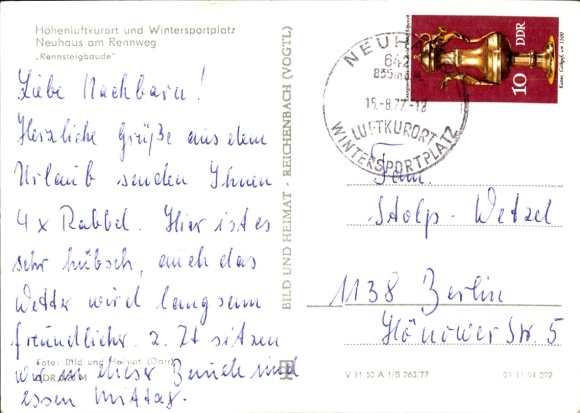 Höhenluftkurort und Wintersportplatz
Neuhaus am Rennweg
„Rennsteigbaude"
Liebe Nachbarn!
Herzliche Grüße aus dem
Urlaub senden Ihnen
4 x Rabbel. Hier ist es
sehr hübsch, auch das
Wetter wird langsam
freundlicher. z. Zt sitzen
wir in dieser Baude und
essen Mittag.
Foto: Bild und Heimat (Darr)
BILD UND HEIMAT · REICHENBACH (VOGTL)
10 DDR
NEUHA
642
835m
15.-8.77-18
LUFTKURORT
WINTERSPORTPLATZ
Fam.
Stolp - Wetzel
1138 Berlin
Hönower Str. 5
V 11 50 A 1/B 263/77
01 11 04 292